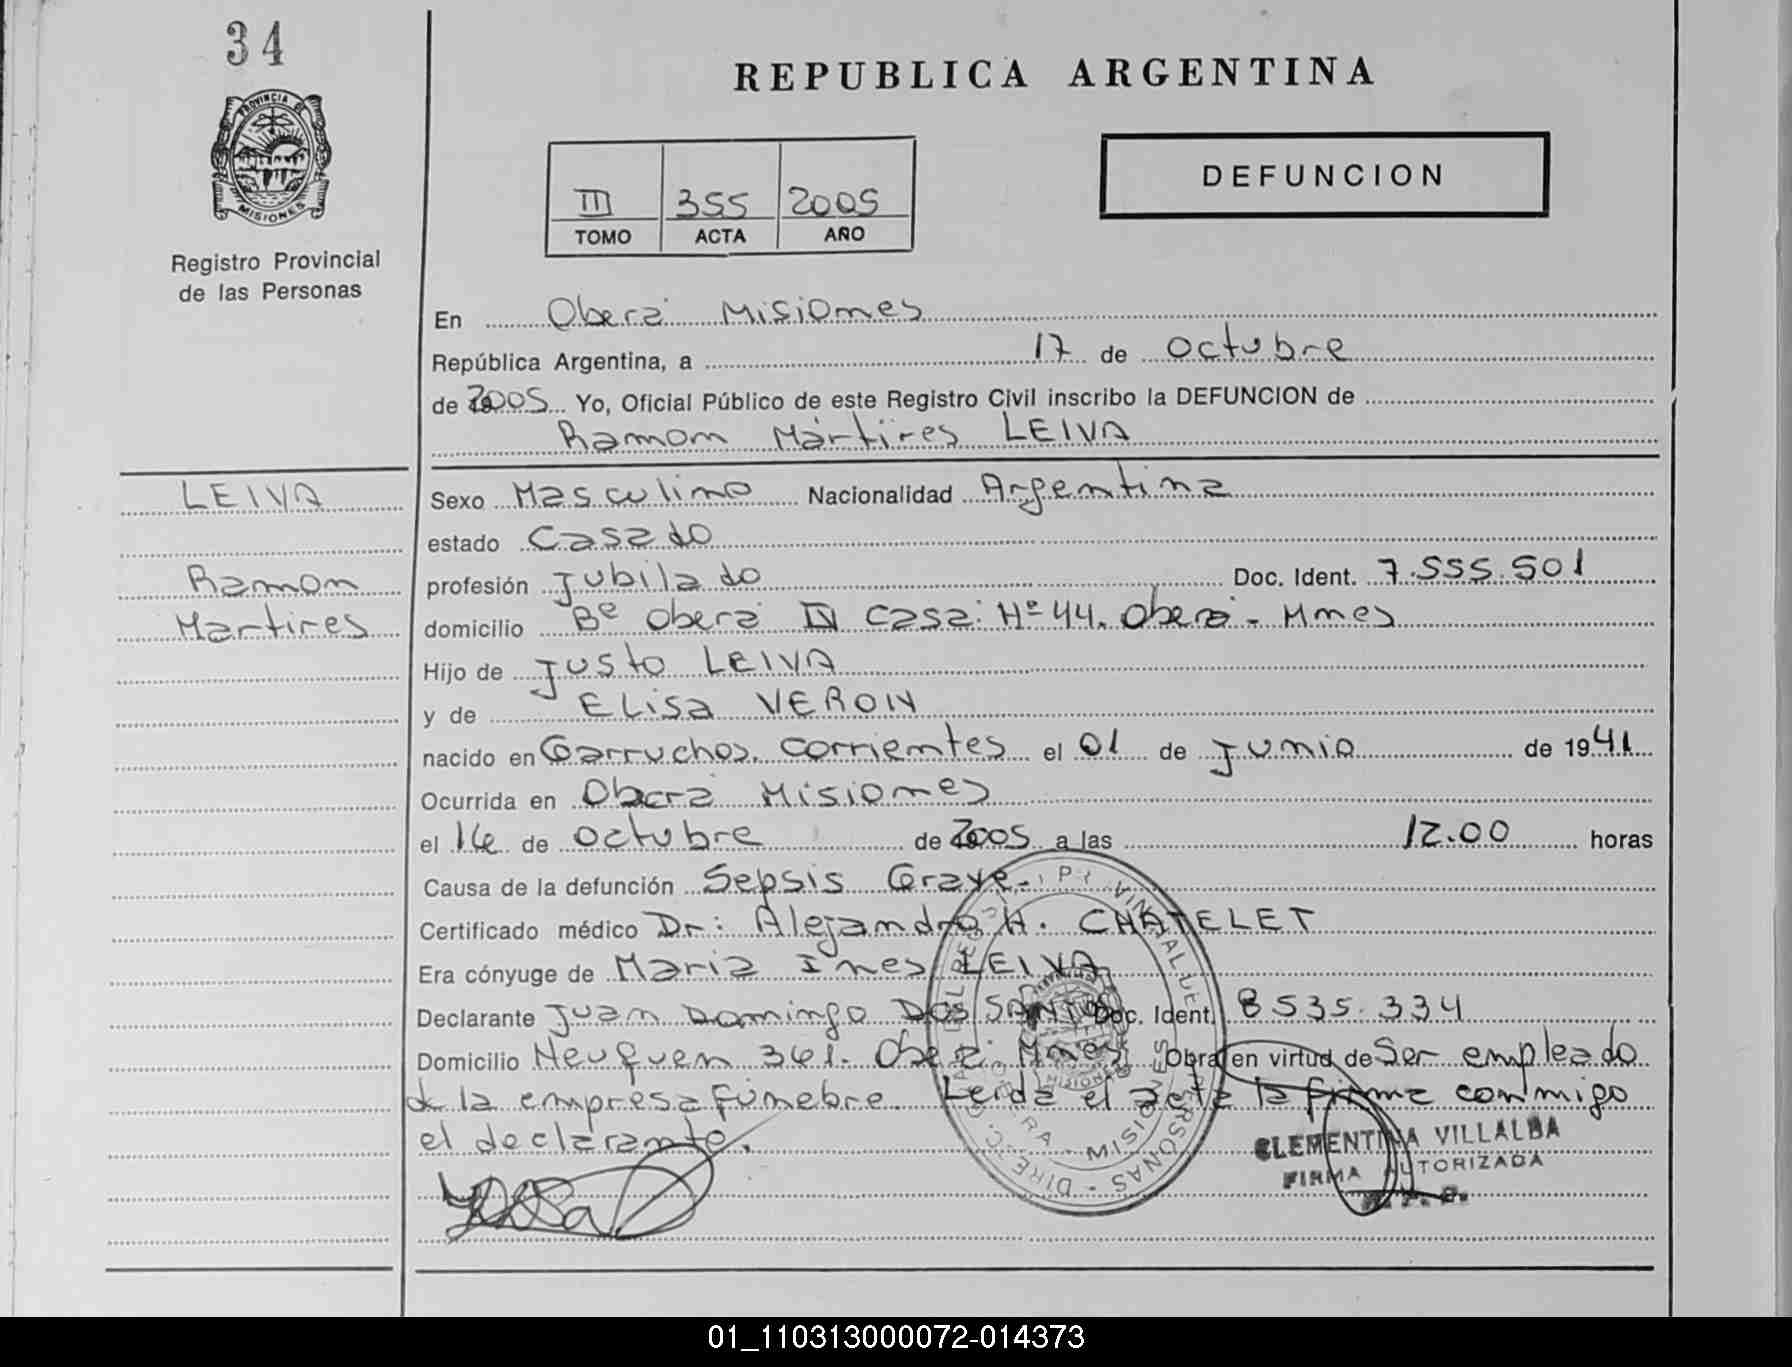 34
REPUBLICA ARGENTINA
PROVINCIA DE
MISIONES
Registro Provincial
de las Personas
III 355 2005
TOMO ACTA AÑO
DEFUNCION
En Oberá Misiones
República Argentina, a 17 de octubre
de 2005 Yo, Oficial Público de este Registro Civil inscribo la DEFUNCION de
Ramon Mártires LEIVA
LEIVA
Ramon
Martires
Sexo Masculino Nacionalidad Argentina
estado Casado
profesión Jubilado Doc. Ident. 7.555.501
domicilio Bº Oberá IV Casa: Nº 44. Oberá - Mnes
Hijo de Justo LEIVA
y de Elisa VERON
nacido en Garruchos, Corrientes el 01 de Junio de 1941
Ocurrida en Oberá Misiones
el 16 de octubre de 2005 a las 12.00 horas
Causa de la defunción Sepsis Grave.
Certificado médico Dr: Alejandro H. CHATELET
Era cónyuge de Maria Ines LEIVA
Declarante Juan Domingo DOS SANTOS Doc. Ident. 8535.334
Domicilio Neuquen 361. Oberá Mnes Obra en virtud de Ser empleado
de la empresa fúnebre. Leída el acta la firma conmigo
el declarante.
CLEMENTINA VILLALBA
FIRMA AUTORIZADA
01_110313000072-014373